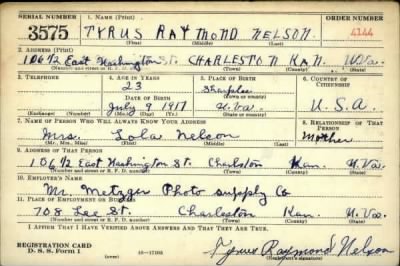 SERIAL NUMBER 1. NAME (Print) ORDER NUMBER
3575 TYRUS RAYMOND NELSON. 4144
(First) (Middle) (Last)
2. ADDRESS (Print)
106½ East Washington St. CHARLESTON KAN. W.Va.
(Number and street or R. F. D. number) (Town) (County) (State)
3. TELEPHONE 4. AGE IN YEARS 5. PLACE OF BIRTH 6. COUNTRY OF CITIZENSHIP
23 Sharples
DATE OF BIRTH (Town or county)
July 9 1917 W.Va. U.S.A.
(Exchange) (Number) (Mo.) (Day) (Yr.) (State or country)
7. NAME OF PERSON WHO WILL ALWAYS KNOW YOUR ADDRESS 8. RELATIONSHIP OF THAT PERSON
Mrs. Lola Nelson Mother
(Mr., Mrs., Miss) (First) (Middle) (Last)
9. ADDRESS OF THAT PERSON
106½ East Washington St. Charleston Kan. W.Va.
(Number and street or R. F. D. number) (Town) (County) (State)
10. EMPLOYER'S NAME
Mr. Metzger Photo Supply Co
11. PLACE OF EMPLOYMENT OR BUSINESS
708 Lee St. Charleston Kan. W.Va.
(Number and street or R. F. D. number) (Town) (County) (State)
I AFFIRM THAT I HAVE VERIFIED ABOVE ANSWERS AND THAT THEY ARE TRUE.
REGISTRATION CARD
D. S. S. Form 1 (over) Tyrus Raymond Nelson
(Registrant's signature)